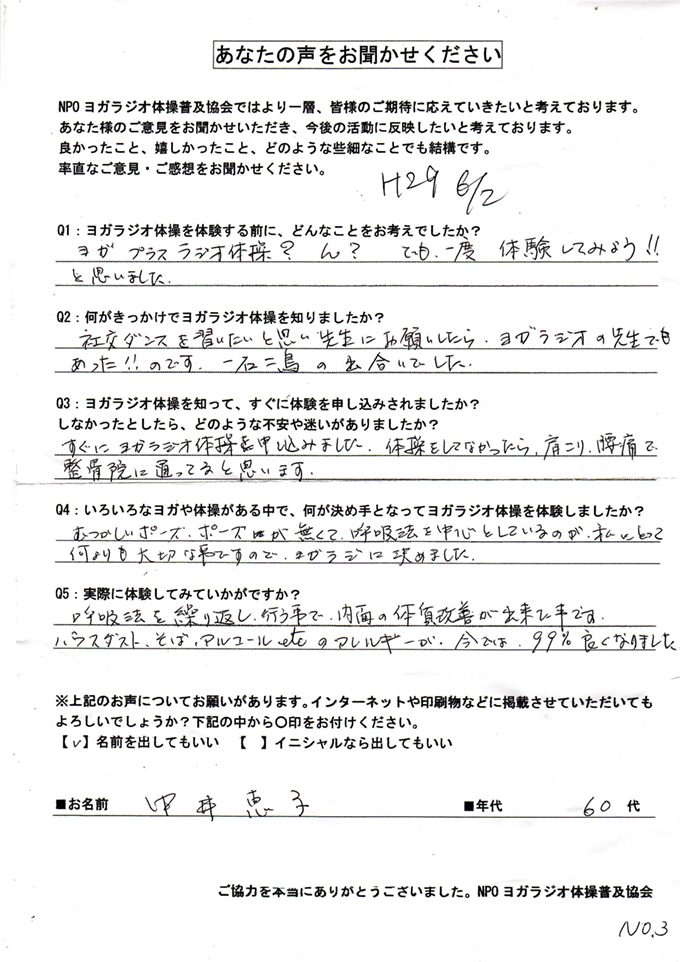 あなたの声をお聞かせください
NPOヨガラジオ体操普及協会ではより一層、皆様のご期待に応えていきたいと考えております。
あなた様のご意見をお聞かせいただき、今後の活動に反映したいと考えております。
良かったこと、嬉しかったこと、どのような些細なことでも結構です。
率直なご意見・ご感想をお聞かせください。
H29 6/2
Q1：ヨガラジオ体操を体験する前に、どんなことをお考えでしたか？
ヨガ プラス ラジオ体操？ ん？ でも、一度 体験してみよう!!
と思いました。
Q2：何がきっかけでヨガラジオ体操を知りましたか？
社交ダンスを習いたいと思い先生にお願いしたら、ヨガラジオの先生でも
あった!!のです。一石二鳥の出合いでした。
Q3：ヨガラジオ体操を知って、すぐに体験を申し込みされましたか？
しなかったとしたら、どのような不安や迷いがありましたか？
すぐにヨガラジオ体操を申し込みました。体操をしてなかったら、肩こり、腰痛で
整骨院に通ってると思います。
Q4：いろいろなヨガや体操がある中で、何が決め手となってヨガラジオ体操を体験しましたか？
むつかしいポーズ、ポーズが無くて、呼吸法を中心としているのが、私にとって
何よりも大切な事ですので、ヨガラジに決めました。
Q5：実際に体験してみていかがですか？
呼吸法を繰り返し、行う事で、内面の体質改善が出来た事です。
ハウスダスト、そば、アルコール etc のアレルギーが、今では、99％良くなりました
※上記のお声についてお願いがあります。インターネットや印刷物などに掲載させていただいても
よろしいでしょうか？下記の中から○印をお付けください。
【✓】名前を出してもいい 【 】イニシャルなら出してもいい
■お名前 中井 恵子 ■年代 60 代
ご協力を本当にありがとうございました。NPOヨガラジオ体操普及協会
NO.3